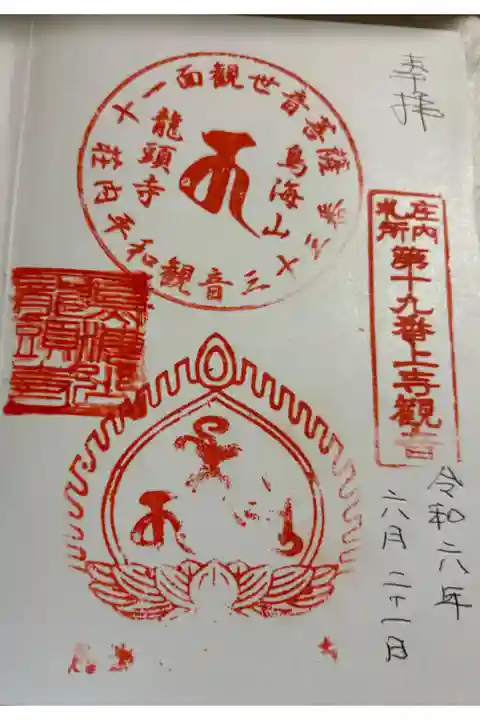 奉拝
庄内
札所
第十九番上寺観音
令和六年
六月二十一日
十一面観世音菩薩
荘内平和観音三十三番
鳥海山
龍頭寺
鳥海山
龍頭寺